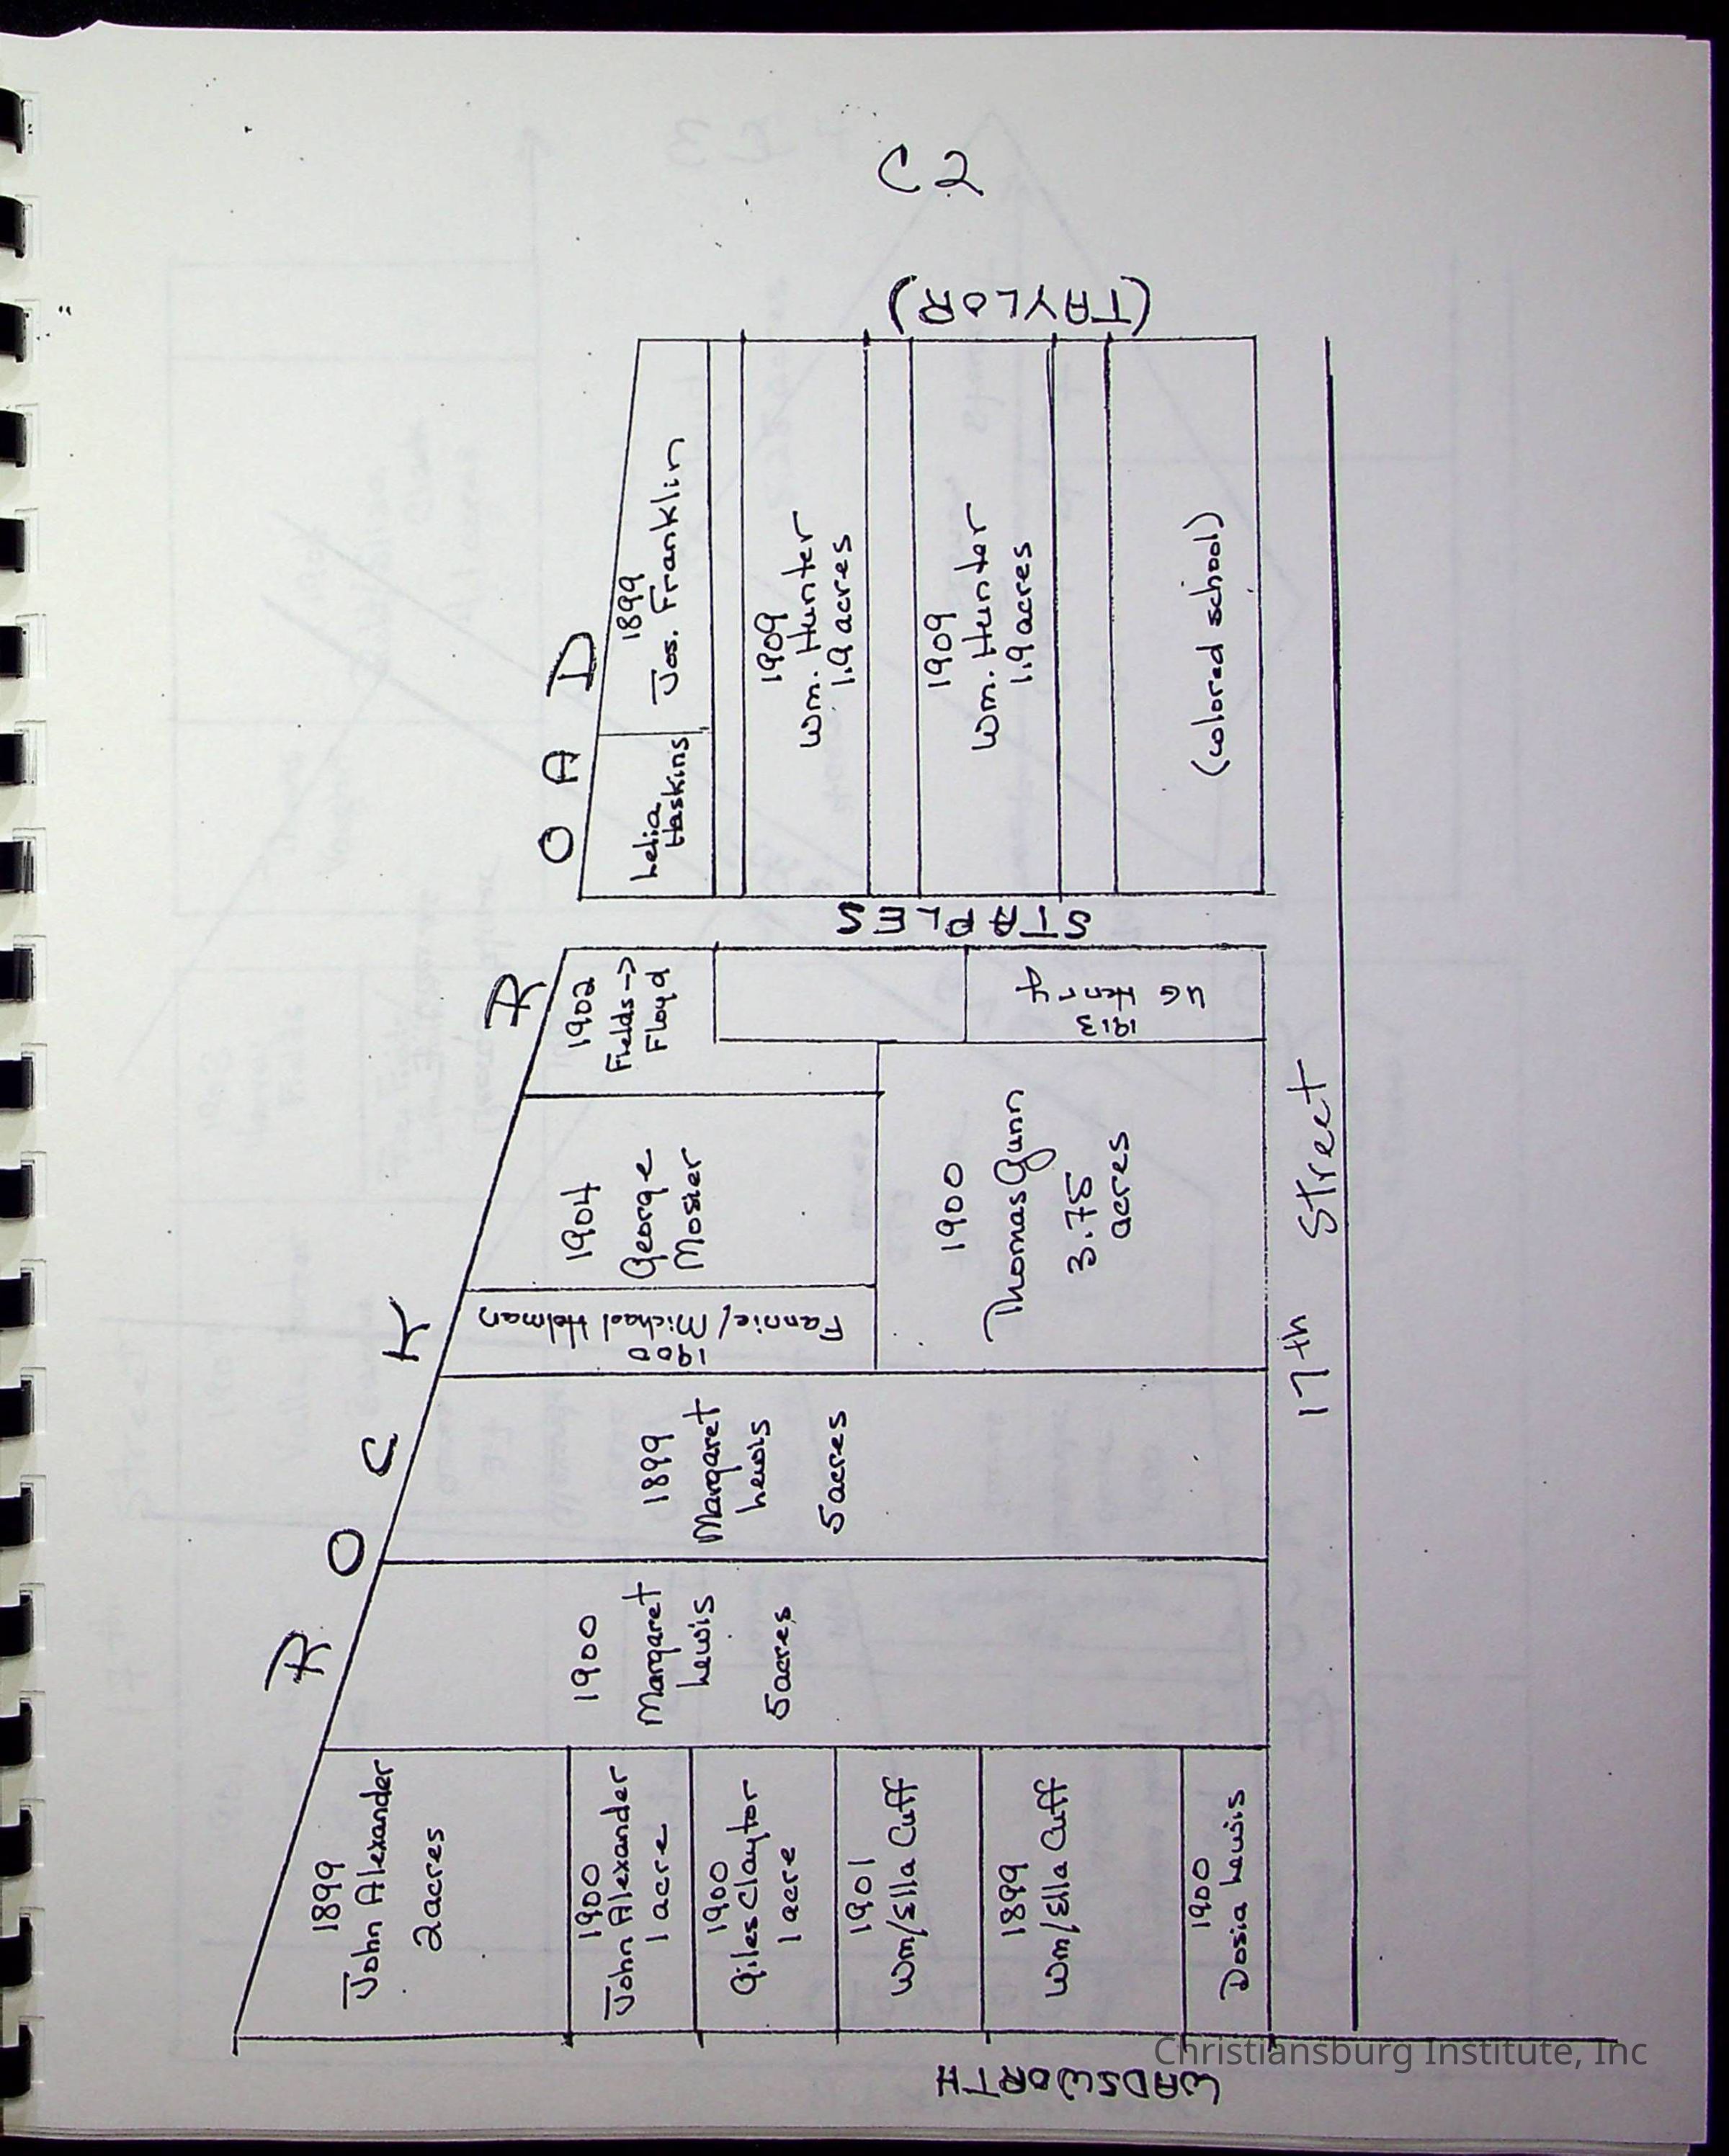 C2
ROCK ROAD
1899
John Alexander
2 acres
1900
John Alexander
1 acre
1900
Giles Claytor
1 acre
1901
Wm/Ella Cuff
1899
Wm/Ella Cuff
1900
Dosia Lewis
WADSWORTH
1900
Margaret
Lewis
5 acres
1899
Margaret
Lewis
5 acres
1900
Fannie/Michael Holman
1904
George
Mosier
1902
Fields→
Floyd
1900
Thomas Gunn
3.75
acres
1913
STAPLES
Lelia
Haskins
1899
Jos. Franklin
1909
Wm. Hunter
1.9 acres
1909
Wm. Hunter
1.9 acres
(colored school)
(TAYLOR)
17th Street
Christiansburg Institute, Inc